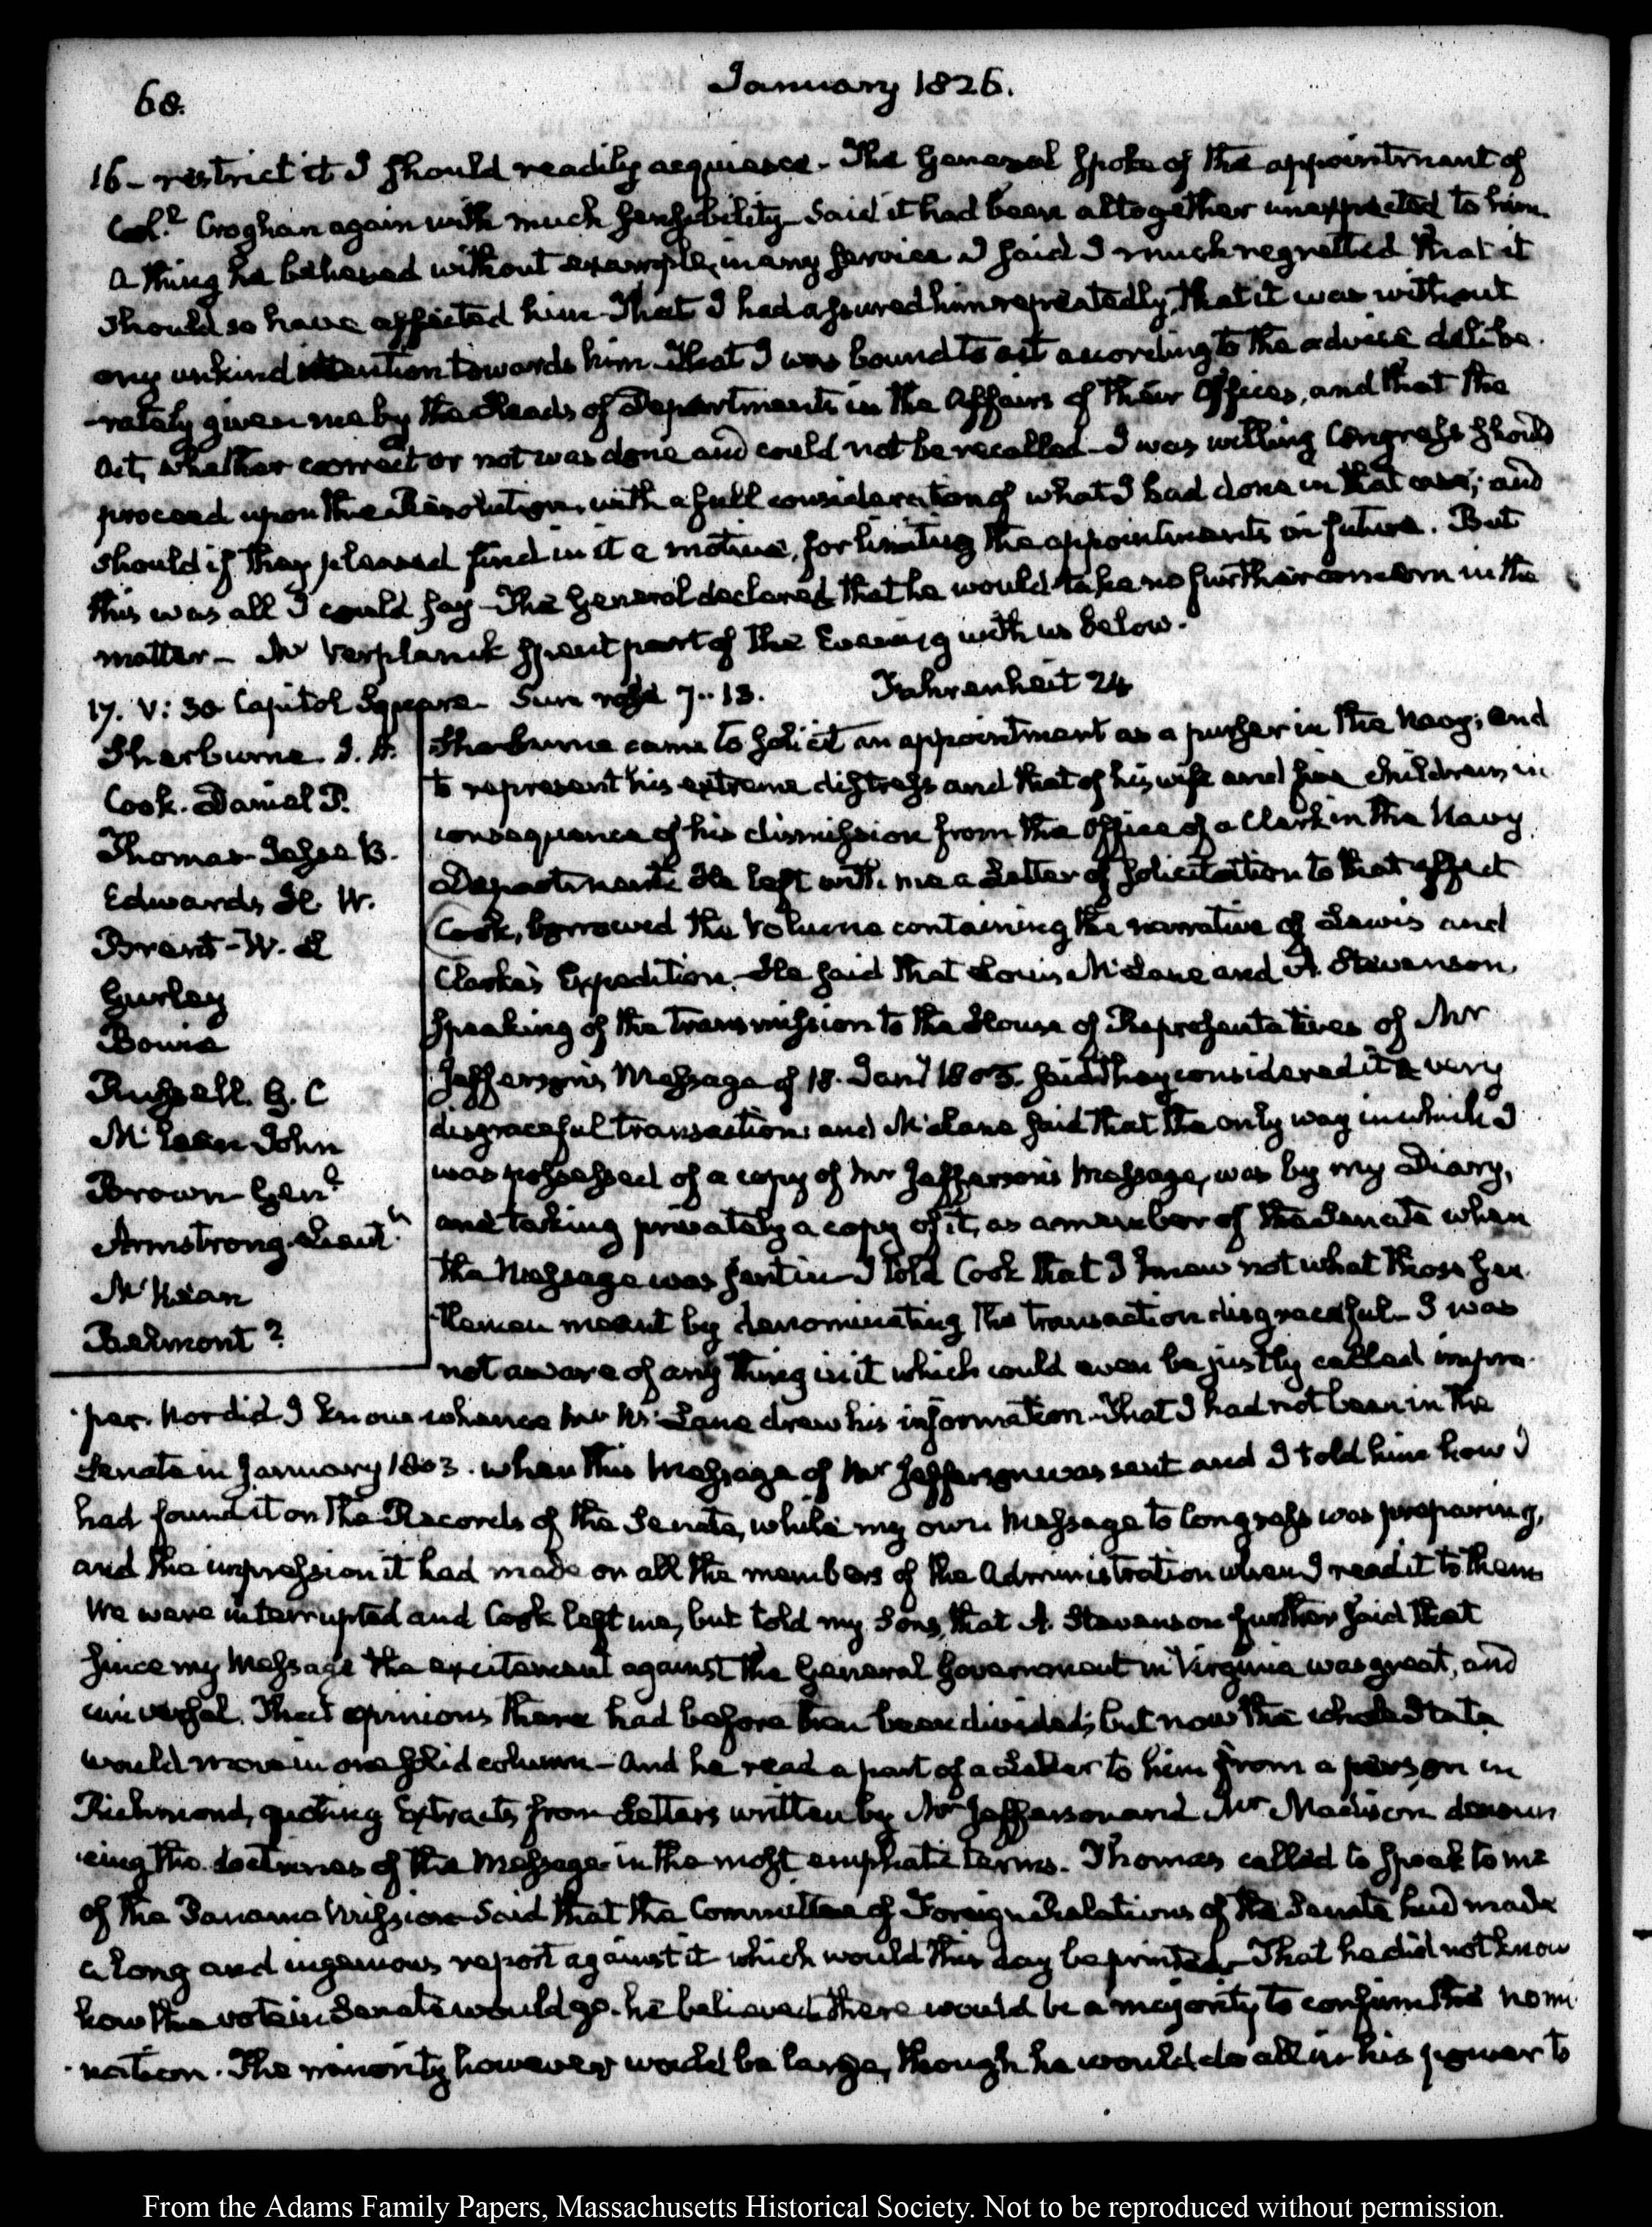 68.
January 1826.
16 - restrict it I should readily acquiesce - The General spoke of the appointment of
Coll. Croghan again with much sensibility - Said it had been altogether unexpected to him.
A thing he believed without example, in any service. I said I much regretted that it
should so have affected him - That I had assured him repeatedly, that it was without
any unkind intention towards him - That I was bound to act according to the advice delibe-
-rately given me by the Heads of Departments in the Affairs of their Offices, and that the
act, whether correct or not was done and could not be recalled - I was willing Congress should
proceed upon the Resolution, with a full consideration of what I had done in that case; and
should if they pleased find in it a motive, for limiting the appointments in future. But
this was all I could say - The General declared that he would take no further concern in the
matter - Mr Verplanck spent part of the Evening with us below.
17. V: 30 Capitol Square - Sun rose 7..13. Fahrenheit 24
Sherburne. J. H.
Cook. Daniel P.
Thomas - Jesse B.
Edwards H. W.
Brent - W. L
Gurley
Bowie
Russell. G. C
McLean John
Brown - Genl
Armstrong - Lieutt
McKean
Baelmont?
Sherburne came to solicit an appointment as a purser in the Navy; and
to represent his extreme distress and that of his wife and five children, in
consequence of his dismission from the Office of a Clerk in the Navy
Department. He left with me a Letter of solicitation to that effect
Cook, borrowed the Volume containing the narrative of Lewis and
Clarke's Expedition. He said that Louis McLane and A. Stevenson,
speaking of the transmission to the House of Representatives of Mr
Jefferson's Message of 18. Jany 1803. said they considered it a very
disgraceful transaction, and McLane said that the only way in which I
was possessed of a copy of Mr Jefferson's Message, was by my Diary,
and taking privately a copy of it, as a member of the Senate when
the Message was sent in - I told Cook that I knew not what those Gen-
-tlemen meant by denominating the transaction disgraceful - I was
not aware of any thing in it which could even be justly called impro-
-per. Nor did I know whence Mr McLane drew his information - That I had not been in the
Senate in January 1803. when this Message of Mr Jefferson was sent and I told him how I
had found it on the Records of the Senate, while my own Message to Congress was preparing,
and the impression it had made on all the members of the Administration when I read it to them
We were interrupted and Cook left me, but told my Sons, that A. Stevenson further said that
since my Message the excitement against the General Government in Virginia was great, and
universal. That opinions there had before then been divided; but now the whole State
would move in one solid column - And he read a part of a Letter to him from a person in
Richmond, quoting Extracts from Letters written by Mr Jefferson and Mr Madison denoun-
-cing the doctrines of the Message in the most emphatic terms. Thomas called to speak to me
of the Panama Mission - Said that the Committee of Foreign Relations of the Senate had made
a long and ingenious report against it which would this day be printed - That he did not know
how the vote in Senate would go - he believed there would be a majority to confirm the nomi-
-nation. The minority however would be large, though he would do all in his power to
From the Adams Family Papers, Massachusetts Historical Society. Not to be reproduced without permission.